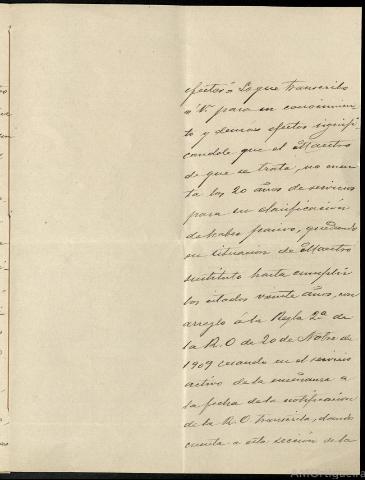 efectos» Lo que transcribo
á V. para su conocimien-
to y demás efectos signifi-
candole que el Maestro
de que se trata, no cuen-
ta los 20 años de servicios
para su clasificación
de haber pasivo, quedando
en situacion de Maestro
sustituto hasta cumplir
los citados veinte años, con
arreglo á la Regla 2ª de
la R. O de 20 de Nobre de
1909 cesando en el servicio
activo de la enseñanza a
la fecha de la notificación
de la R. O transcrita, dando
cuenta a esta sección de la
AMOrtigueira